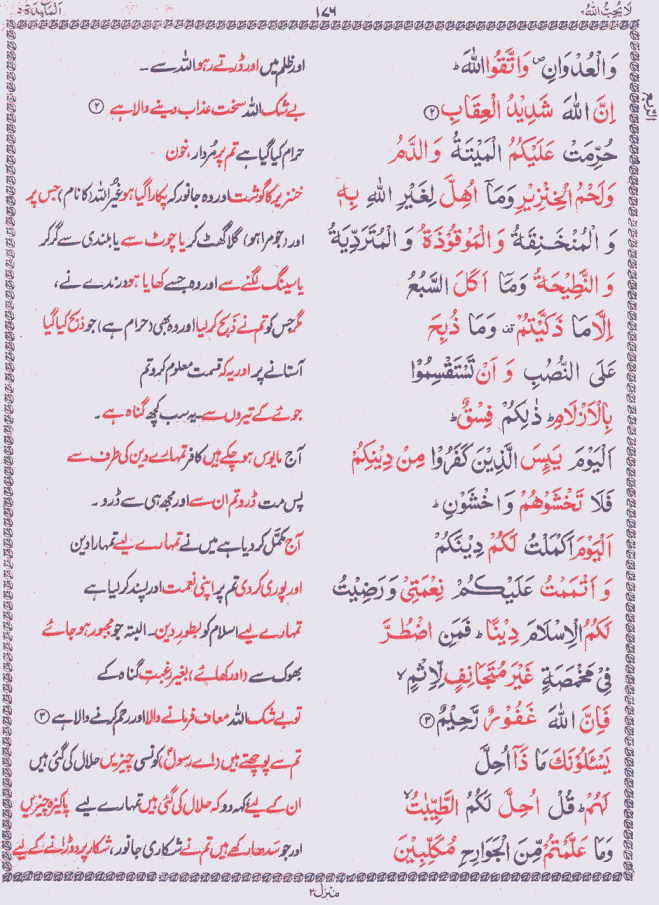 لَا يُحِبُّ اللهُ ٦
١٧٦
اَلْمَآئِدَة ٥
وَالْعُدْوَانِ ۪ وَاتَّقُوا اللهَ ؕ
اور ظلم میں اور ڈرتے رہو اللہ سے ۔
اِنَّ اللهَ شَدِيْدُ الْعِقَابِ ②
بے شک اللہ سخت عذاب دینے والا ہے ②
حُرِّمَتْ عَلَيْكُمُ الْمَيْتَةُ وَالدَّمُ
حرام کیا گیا ہے تم پر مُردار، خون
وَلَحْمُ الْخِنْزِيْرِ وَمَاۤ اُهِلَّ لِغَيْرِ اللهِ بِهٖ
خنزیر کا گوشت اور وہ جانور کہ پکارا گیا ہو غیرُ اللہ کا نام) جس پر
وَالْمُنْخَنِقَةُ وَالْمَوْقُوْذَةُ وَالْمُتَرَدِّيَةُ
اور (جو مرا ہو) گلا گھٹ کر یا چوٹ سے یا بلندی سے گر کر
وَالنَّطِيْحَةُ وَمَاۤ اَكَلَ السَّبُعُ
یا سینگ لگنے سے اور وہ جسے کھایا ہو درندے نے،
اِلَّا مَا ذَكَّيْتُمْ ۟ وَمَا ذُبِحَ
مگر جس کو تم نے ذبح کر لیا اور وہ بھی (حرام ہے) جو ذبح کیا گیا
عَلَى النُّصُبِ وَاَنْ تَسْتَقْسِمُوْا
آستانے پر اور یہ کہ قسمت معلوم کرو تم
بِالْاَزْلَامِ ؕ ذٰلِكُمْ فِسْقٌ ؕ
جوئے کے تیروں سے ۔ یہ سب کچھ گناہ ہے ۔
اَلْيَوْمَ يَئِسَ الَّذِيْنَ كَفَرُوْا مِنْ دِيْنِكُمْ
آج مایوس ہو چکے ہیں کافر تمہارے دین کی طرف سے
فَلَا تَخْشَوْهُمْ وَاخْشَوْنِ ؕ
پس مت ڈرو تم ان سے اور مجھ ہی سے ڈرو ۔
اَلْيَوْمَ اَكْمَلْتُ لَكُمْ دِيْنَكُمْ
آج مکمّل کر دیا ہے میں نے تمہارے لیے تمہارا دین
وَاَتْمَمْتُ عَلَيْكُمْ نِعْمَتِيْ وَرَضِيْتُ
اور پوری کر دی تم پر اپنی نعمت اور پسند کر لیا ہے
لَكُمُ الْاِسْلَامَ دِيْنًا ؕ فَمَنِ اضْطُرَّ
تمہارے لیے اسلام کو بطورِ دین ۔ البتہ جو مجبور ہو جائے
فِيْ مَخْمَصَةٍ غَيْرَ مُتَجَانِفٍ لِّاِثْمٍ ۙ
بھوک سے (اور کھا لے) بغیر رغبتِ گناہ کے
فَاِنَّ اللهَ غَفُوْرٌ رَّحِيْمٌ ③
تو بے شک اللہ معاف فرمانے والا اور رحم کرنے والا ہے ③
يَسْئَلُوْنَكَ مَا ذَاۤ اُحِلَّ
تم سے پوچھتے ہیں (اے رسولؐ) کونسی چیزیں حلال کی گئی ہیں
لَهُمْ ؕ قُلْ اُحِلَّ لَكُمُ الطَّيِّبٰتُ ۙ
ان کے لیے؟ کہہ دو کہ حلال کی گئی ہیں تمہارے لیے پاکیزہ چیزیں
وَمَا عَلَّمْتُمْ مِّنَ الْجَوَارِحِ مُكَلِّبِيْنَ
اور جو سدھا رکھے ہیں تم نے شکاری جانور، شکار پر دوڑانے کے لیے
منزل ٢